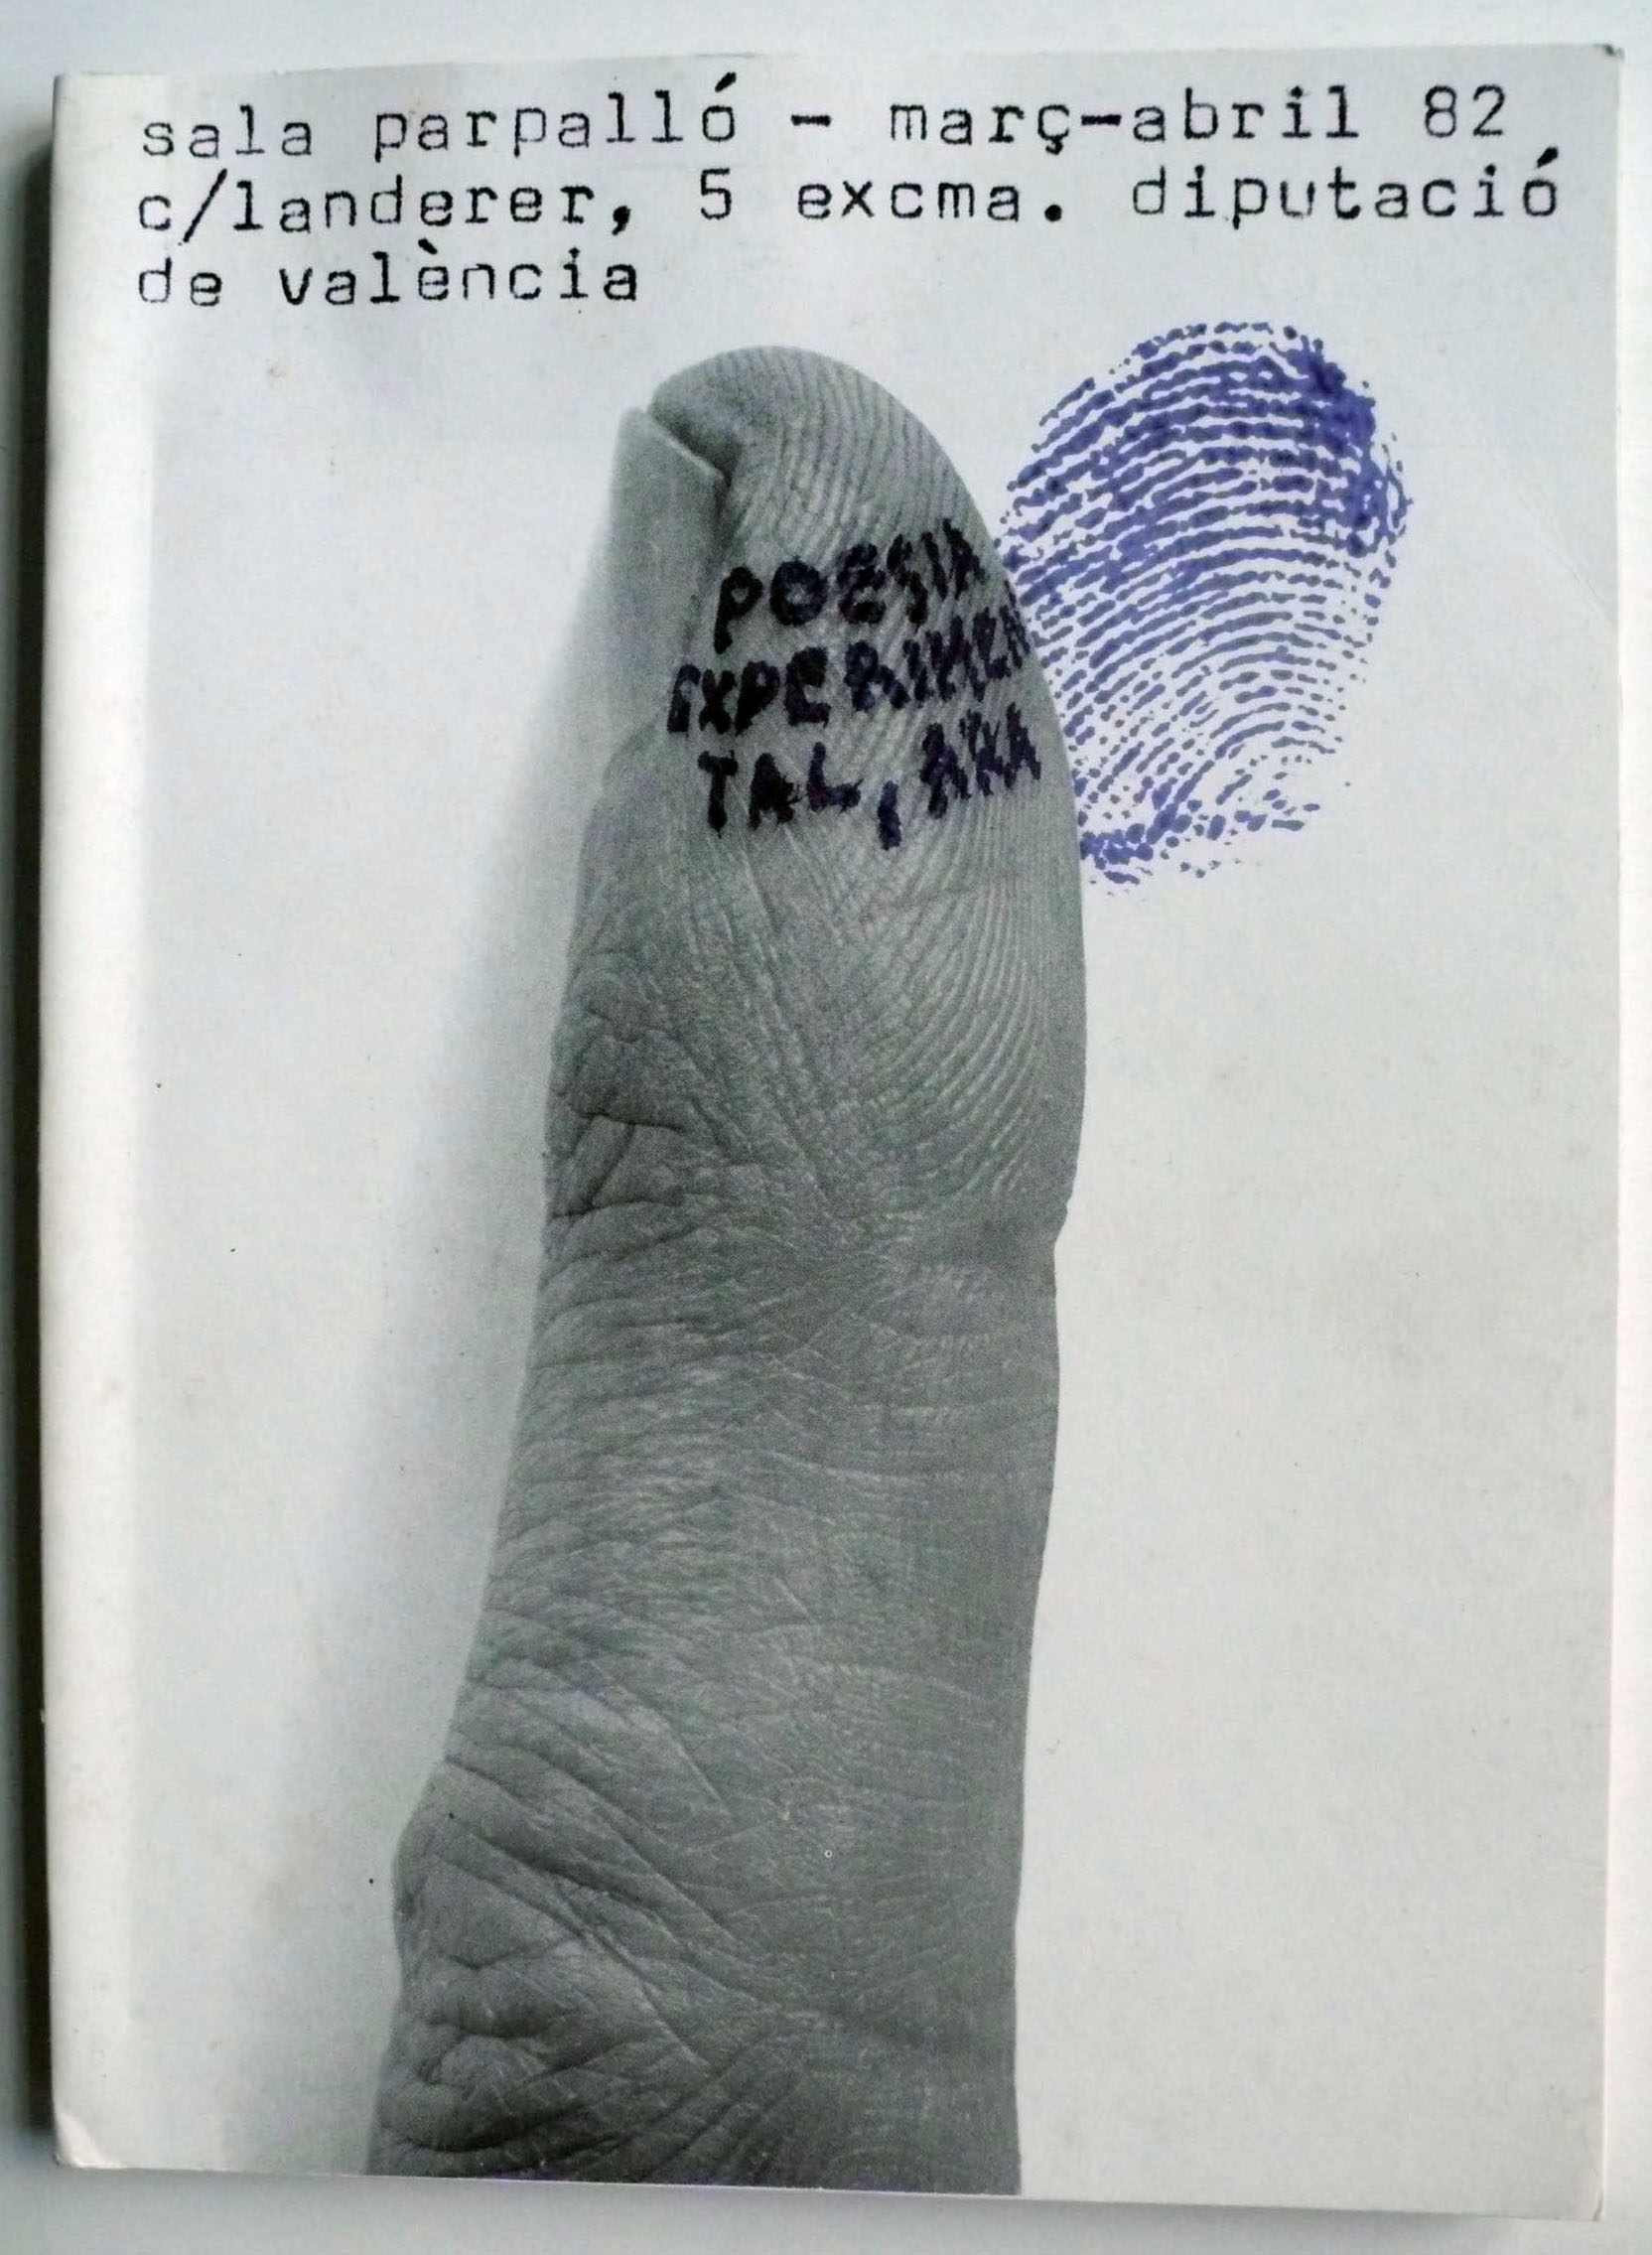 sala parpalló - març-abril 82
c/landerer, 5 excma. diputació
de valència
POESIA
EXPERIMEN
TAL, ARA